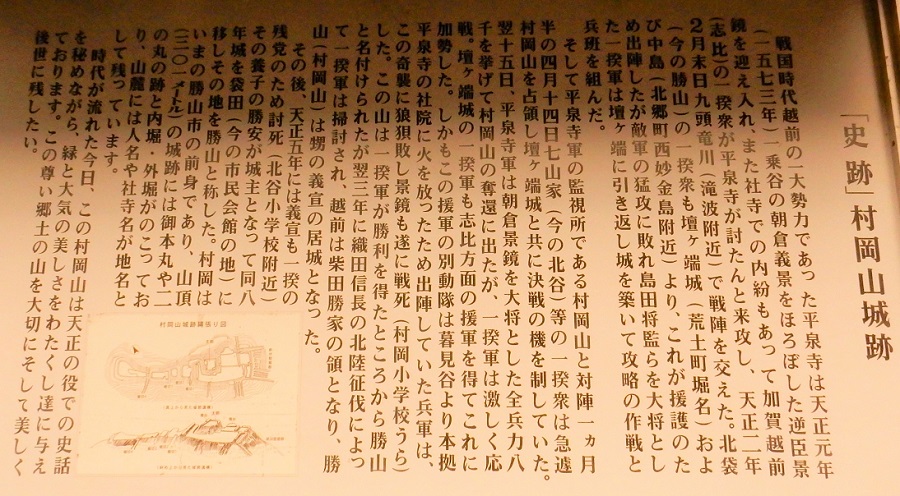 「史跡」村岡山城跡
戦国時代越前の一大勢力であった平泉寺は天正元年
(一五七三年)一乗谷の朝倉義景をほろぼした逆臣景
鏡を迎え入れ、また社寺での内紛もあって加賀越前
(志比)の一揆衆が平泉寺が討たんと来攻し、天正二年
2月末日九頭竜川(滝波附近)で戦陣を交えた。北袋
(今の勝山)の一揆衆も壇ヶ端城(荒土町堀名)およ
び中島(北郷町西妙金島附近)より、これが援護のた
め出陣したが敵軍の猛攻に敗れ島田将監らを大将とし
た一揆軍は壇ヶ端に引き返し城を築いて攻略の作戦と
兵班を組んだ。
そして平泉寺軍の監視所である村岡山と対陣一ヵ月
半の四月十四日七山家(今の北谷)等の一揆衆は急遽
村岡山を占領し壇ヶ端城と共に決戦の機を制していた。
翌十五日、平泉寺軍は朝倉景鏡を大将とした全兵力八
千を挙げて村岡山の奪還に出たが、一揆軍は激しく応
戦。壇ヶ端城の一揆軍も志比方面の援軍を得てこれに
加勢した。しかもこの援軍の別動隊は暮見谷より本拠
平泉寺の社院に火を放ったため出陣していた兵軍は、
この奇襲に狼狽敗し景鏡も遂に戦死(村岡小学校うら)
した。この山は一揆軍が勝利を得たところから勝山
と名付けられたが翌三年に織田信長の北陸征伐によっ
て一揆軍は掃討され、越前は柴田勝家の領となり、勝
山(村岡山)は甥の義宣の居城となった。
その後、天正五年には義宣も一揆の
残党のため討死(北谷小学校附近)
その養子の勝安が城主となって同八
年城を袋田(今の市民会館の地)に
移しその地を勝山と称した。村岡は
いまの勝山市の前身であり、山頂
(三〇一メートル)の城跡には御本丸や二
の丸の跡と内堀・外堀がのこってお
り、山麓には人名や社寺名が地名と
して残っています。
時代が流れた今日、この村岡山は天正の役での史話
を秘めながら、緑と大気の美しさをわたくし達に与え
ております。この尊い郷土の山を大切にそして美しく
後世に残したい。
村岡山城跡縄張り図